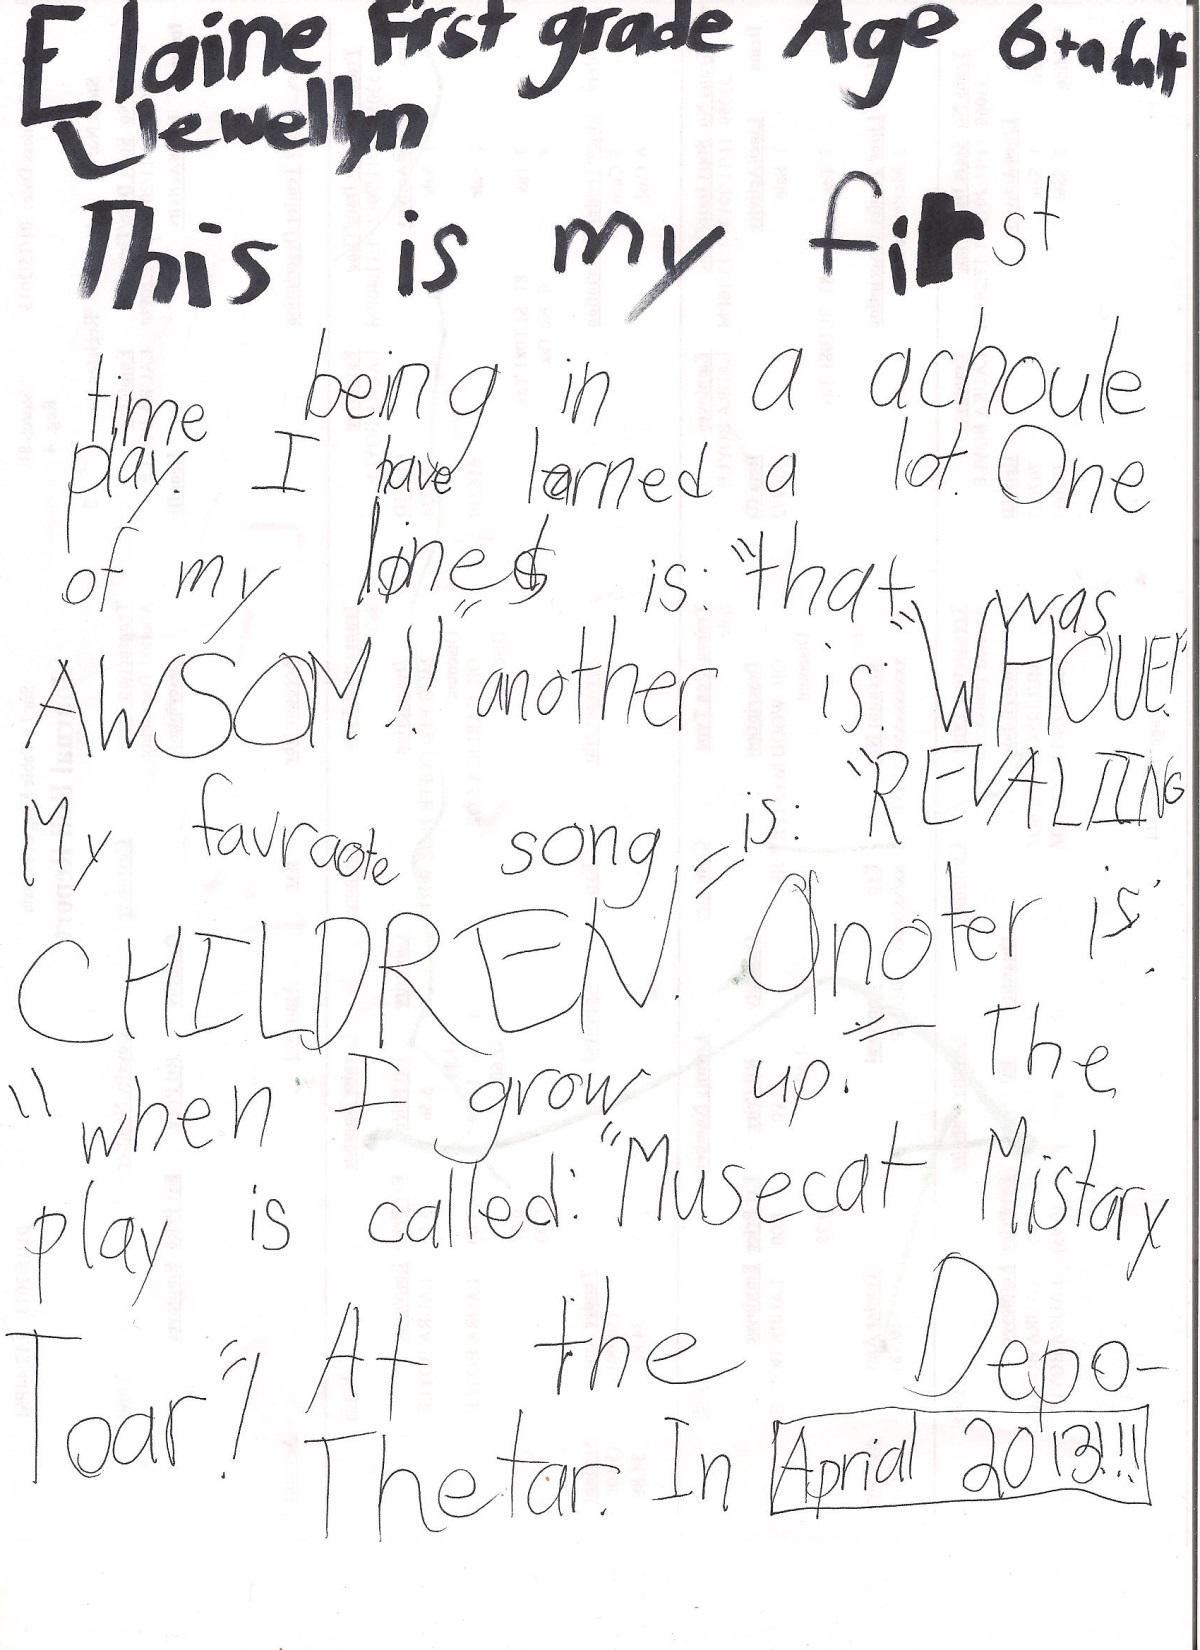 Elaine First grade Age 6 + a half
Llewellyn
This is my first
time being in a achoule
play. I have larned a lot. One
of my lines is: "that was
AWSOM!!" another is: "WHOUE!"
My favraote song is: "REVALIING
CHILDREN!" Anoter is:
"when I grow up." The
play is called: "Musecat Mistary
Toar"! At the Depo-
Thetar. In Aprial 2013!!!